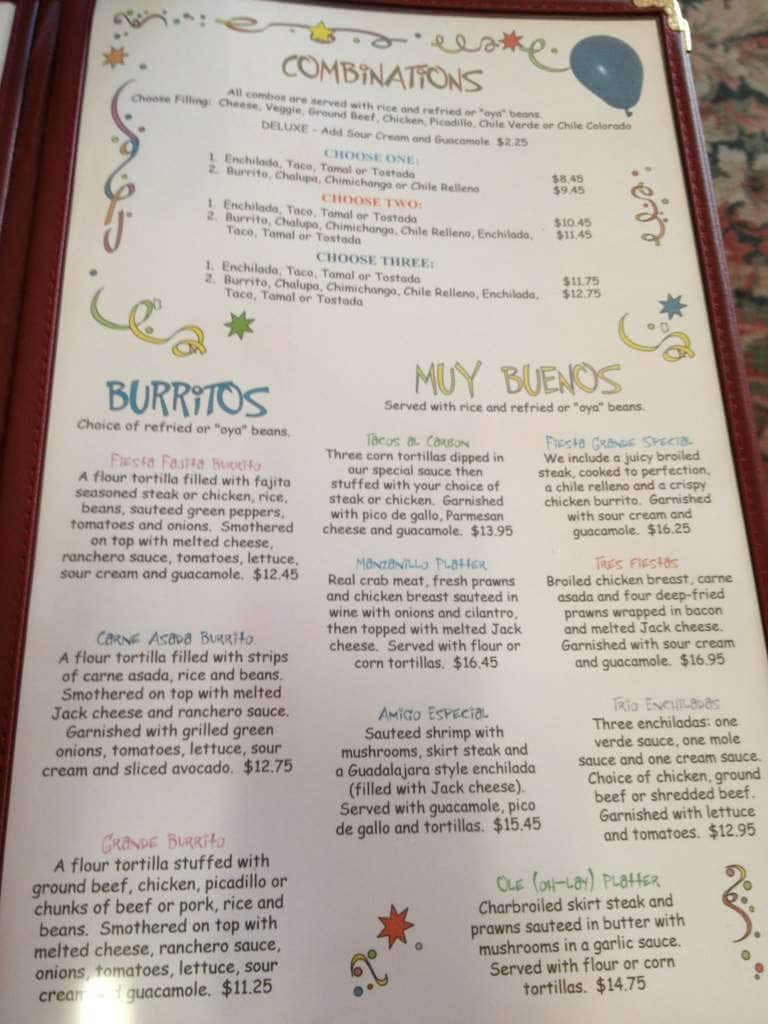 COMBINATIONS
All combos are served with rice and refried or "oya" beans.
Choose Filling: Cheese, Veggie, Ground Beef, Chicken, Picadillo, Chile Verde or Chile Colorado
DELUXE - Add Sour Cream and Guacamole $2.25
CHOOSE ONE:
1. Enchilada, Taco, Tamal or Tostada $8.45
2. Burrito, Chalupa, Chimichanga or Chile Relleno $9.45
CHOOSE TWO:
1. Enchilada, Taco, Tamal or Tostada $10.45
2. Burrito, Chalupa, Chimichanga, Chile Relleno, Enchilada, $11.45
Taco, Tamal or Tostada
CHOOSE THREE:
1. Enchilada, Taco, Tamal or Tostada $11.75
2. Burrito, Chalupa, Chimichanga, Chile Relleno, Enchilada, $12.75
Taco, Tamal or Tostada
BURRITOS
Choice of refried or "oya" beans.
FIESTA FAJITA BURRITO
A flour tortilla filled with fajita
seasoned steak or chicken, rice,
beans, sauteed green peppers,
tomatoes and onions. Smothered
on top with melted cheese,
ranchero sauce, tomatoes, lettuce,
sour cream and guacamole. $12.45
CARNE ASADA BURRITO
A flour tortilla filled with strips
of carne asada, rice and beans.
Smothered on top with melted
Jack cheese and ranchero sauce.
Garnished with grilled green
onions, tomatoes, lettuce, sour
cream and sliced avocado. $12.75
GRANDE BURRITO
A flour tortilla stuffed with
ground beef, chicken, picadillo or
chunks of beef or pork, rice and
beans. Smothered on top with
melted cheese, ranchero sauce,
onions, tomatoes, lettuce, sour
cream guacamole. $11.25
MUY BUENOS
Served with rice and refried or "oya" beans.
TACOS AL CARBON
Three corn tortillas dipped in
our special sauce then
stuffed with your choice of
steak or chicken. Garnished
with pico de gallo, Parmesan
cheese and guacamole. $13.95
MANZANILLO PLATTER
Real crab meat, fresh prawns
and chicken breast sauteed in
wine with onions and cilantro,
then topped with melted Jack
cheese. Served with flour or
corn tortillas. $16.45
AMIGO ESPECIAL
Sauteed shrimp with
mushrooms, skirt steak and
a Guadalajara style enchilada
(filled with Jack cheese).
Served with guacamole, pico
de gallo and tortillas. $15.45
FIESTA GRANDE SPECIAL
We include a juicy broiled
steak, cooked to perfection,
a chile relleno and a crispy
chicken burrito. Garnished
with sour cream and
guacamole. $16.25
TRES FIESTAS
Broiled chicken breast, carne
asada and four deep-fried
prawns wrapped in bacon
and melted Jack cheese.
Garnished with sour cream
and guacamole. $16.95
TRIO ENCHILADAS
Three enchiladas: one
verde sauce, one mole
sauce and one cream sauce.
Choice of chicken, ground
beef or shredded beef.
Garnished with lettuce
and tomatoes. $12.95
OLE (OH-LAY) PLATTER
Charbroiled skirt steak and
prawns sauteed in butter with
mushrooms in a garlic sauce.
Served with flour or corn
tortillas. $14.75